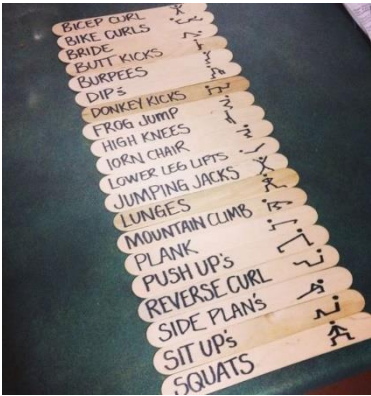 BICEP CURL
BIKE CURLS
BRIDE
BUTT KICKS
BURPEES
DIPS
DONKEY KICKS
FROG JUMP
HIGH KNEES
IORN CHAIR
LOWER LEG LIFTS
JUMPING JACKS
LUNGES
MOUNTAIN CLIMB
PLANK
PUSH UP's
REVERSE CURL
SIDE PLAN's
SIT UP's
SQUATS